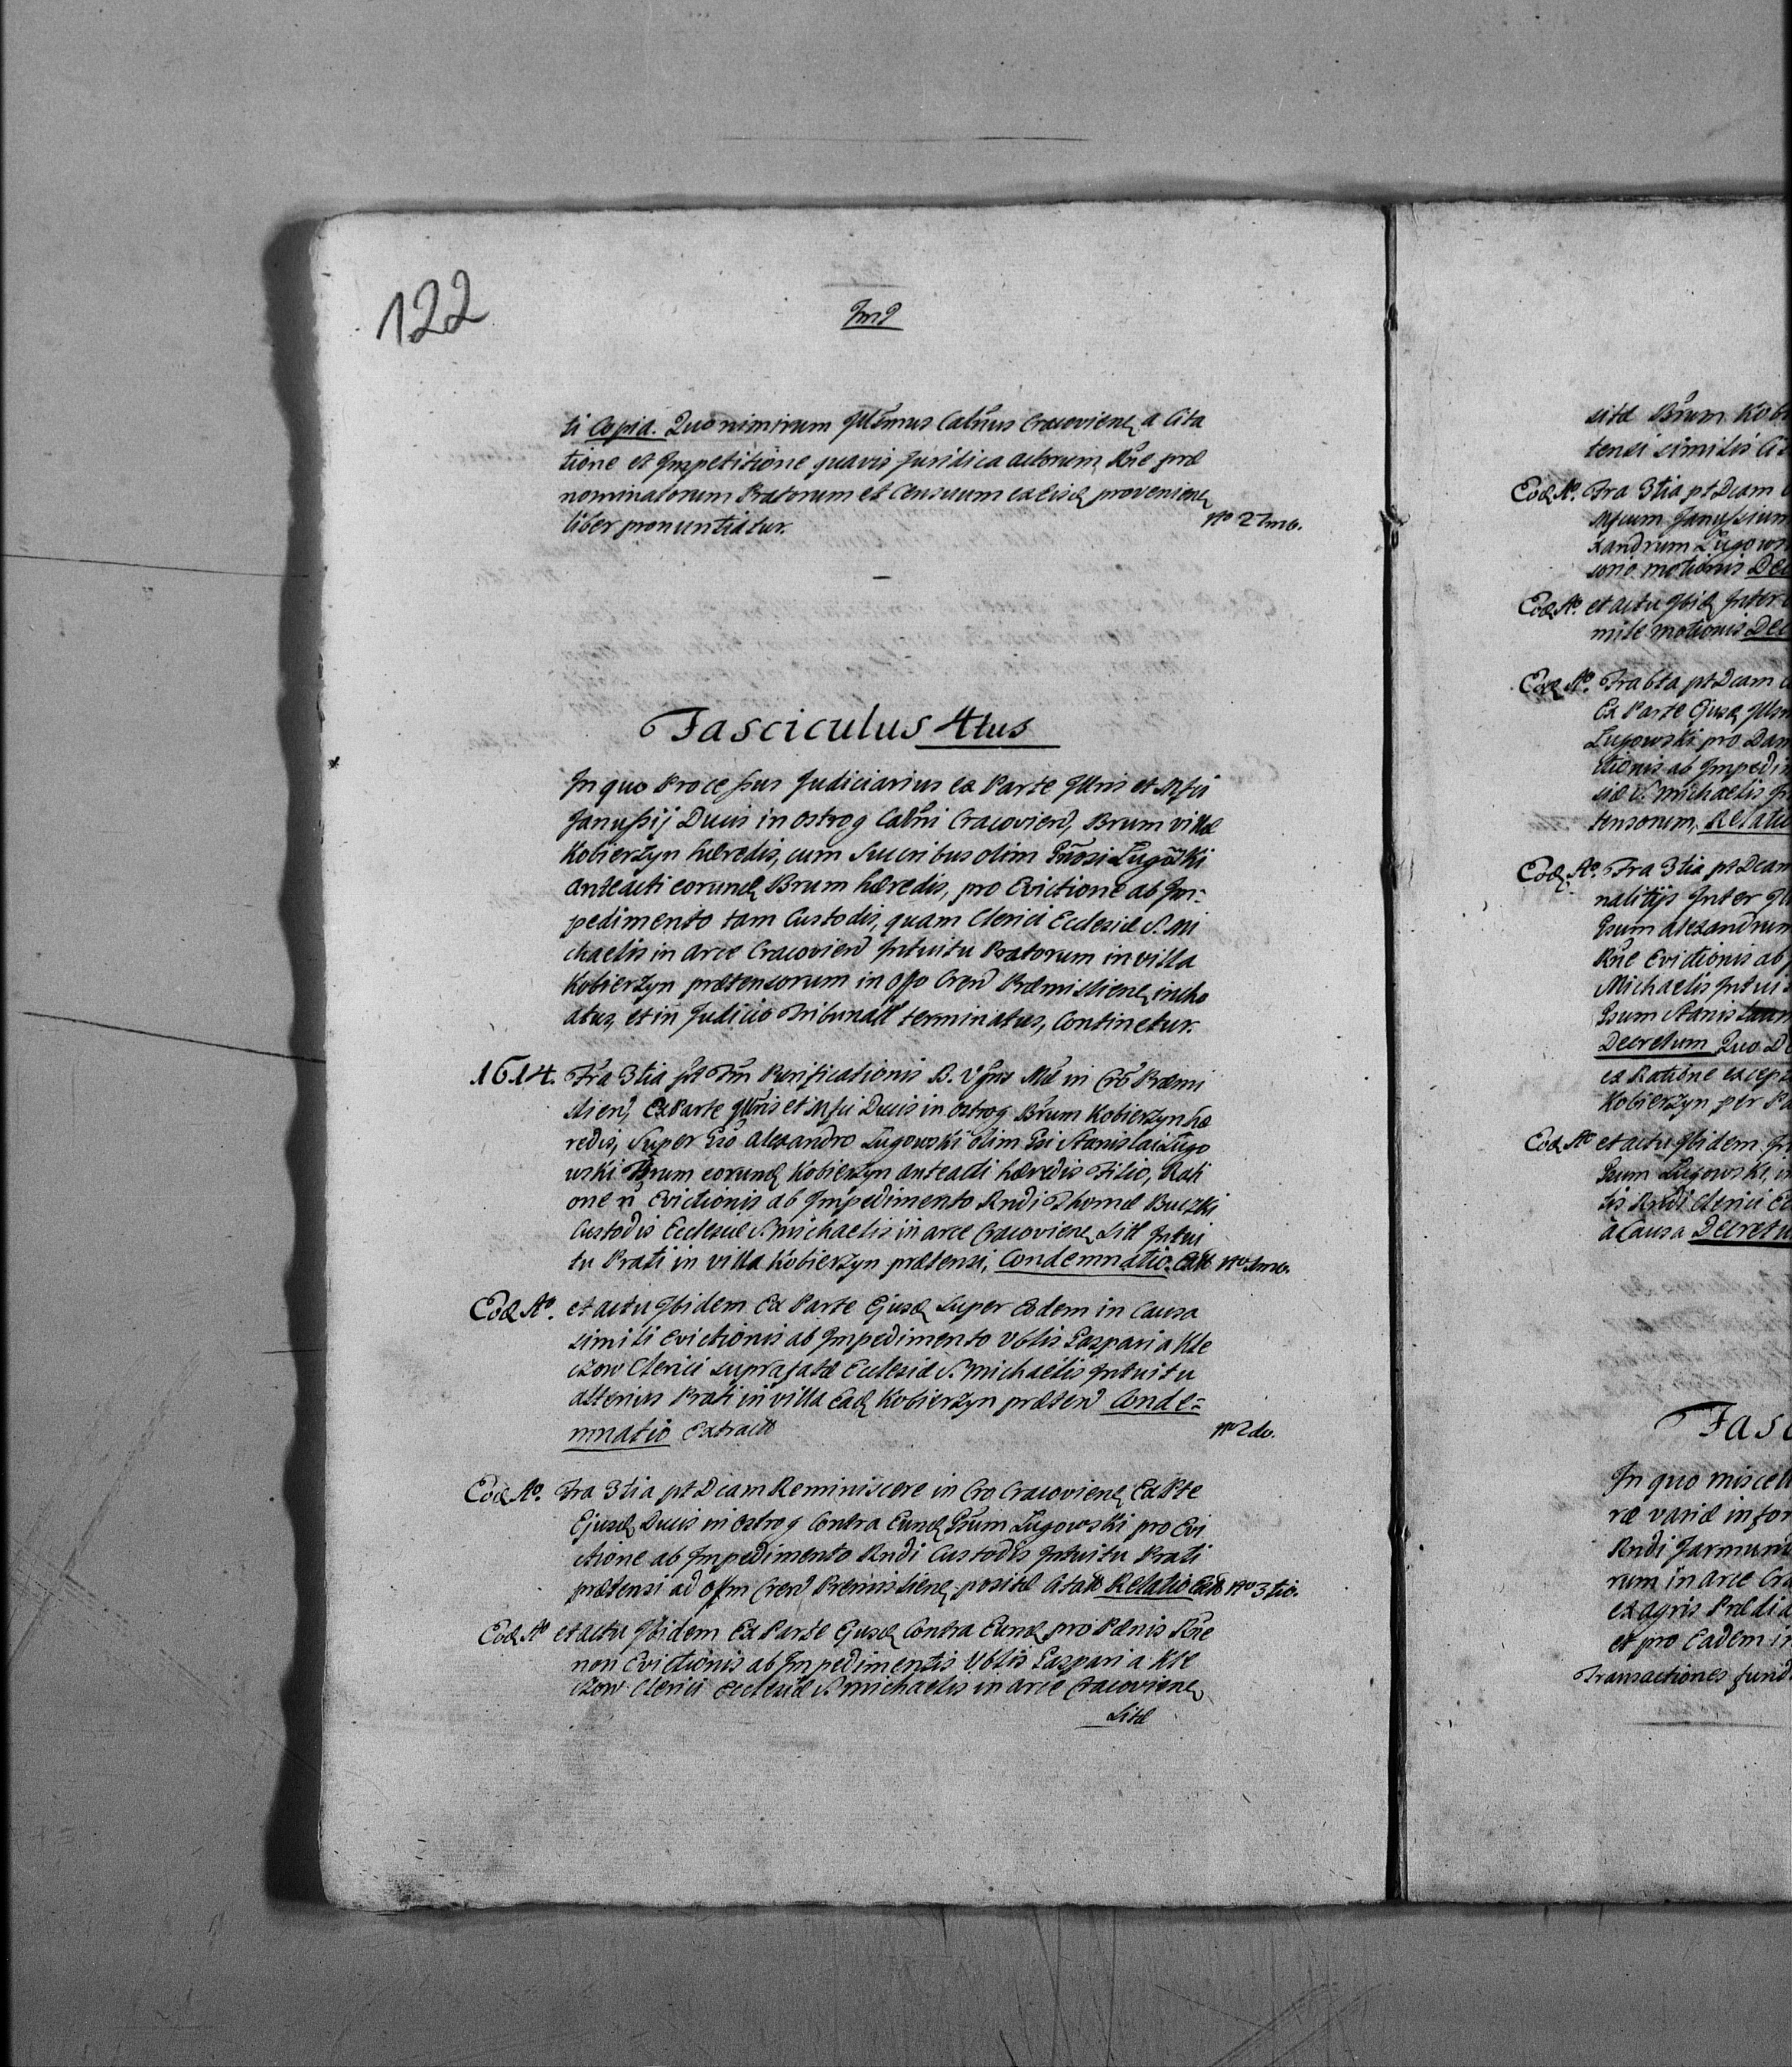 122
ti Copia. Quo nimirum Illmus Caltnus Cracoviens a Cita
tione et Impetitione quavis Juridica actorum, Rne præ
nominatorum Pratorum et Censuum ex Eisd provenien
liber pronuntiatur.
No 27mo.
Fasciculus 4tus
In quo Processus Judiciarius ex Parte Illris et Mfci
Janussij Ducis in Ostrog Caltni Cracovien, Brum villæ
Kobierzyn hæredis, cum Succribus olim Gnosi Lugoski
Anteacti eorund Brum hæredis, pro Evictione ab Im-
pedimento tam Custodis, quam Clerici Ecclesiæ S. Mi
chaelis in arce Cracovien Intuitu Pratorum in villa
Kobierzyn prætensorum in Offo Cren Præmislien, incho
atus, et in Judicio Tribunali terminatus, Continetur.
1614. Fra 3tia pst Fm Purificationis B. Vgnis Mæ in Cro Præmi
slien, Ex Parte Illris et Mfci Ducis in Ostrog Brum Kobierzyn hæ
redis, Super Gso Alexandro Lugowski olim Gsi Stanislai Lugo
wski Brum eorund Kobierzyn anteacti hæredis Filio, Rati
one n Evictionis ab Impedimento Rndi Thomæ Buczki
Custodis Ecclesiæ S. Michaelis in arce Cracovien Sitæ Intui
tu Prati in villa Kobierzyn prætensi, Condemnatio. Extr No 1mo.
Eod Ao. et actu Ibidem Ex Parte Ejusd Super Eodem in Causa
simili Evictionis ab Impedimento Vblis Gaspari a Kle
czow Clerici suprafatæ Ecclesiæ S. Michaelis Intuitu
alterius Prati in villa Ead Kobierzyn præten Conde-
mnatio Extract
No 2do.
Eod Ao. Fra 3tia pt Dcam Reminiscere in Cro Cracovien, Ex Pte
Ejusd Ducis in Ostrog Contra Eund Gsum Lugowski pro Evi
ctione ab Impedimento Rndi Custodis Intuitu Prati
prætensi ad Offm Cren Premislien positæ Citatis Relatio Extr No 3tio.
Eod Ao et actu Ibidem Ex Parte Ejusd Contra Eund pro Pænis Rne
non Evictionis ab Impedimentis Vblis Gaspari a Kle
czow Clerici Ecclesiæ S. Michaelis in arce Cracovien
Sitæ
sitæ Brum Kob
tensi similis Ci
Eod Ao. Fra 3tia pt Dcam
Mfcum Janussium
xandrum Lugows
sorio motionis Dec
Eod Ao. et actu Ibid Inter
mile motionis Dec
Eod Ao. Fra 6ta pt Dcam
Ex Parte Ejusd Illm
Lugowski pro Dam
ctionis ab Impedim
siæ S. Michaelis In
tensorum, Relatio
Eod Ao. Fra 3tia pt Dcam
nalitijs Inter Ill
Gsum Alexandrum
Rne Evictionis ab
Michaelis Intui
Gsum Stanis
Decretum Quo D
ex Ratione excep
Kobierzyn per Pa
Eod Ao et actu Ibidem In
Gsum Lugowski, in
tis Rndi Clerici Ec
a Causa Decretu
Fasc
In quo miscell
ræ variæ infor
Rndi Jarmund
rum in arce Cra
ex agris Prædia
et pro Eadem in
Transactiones fund